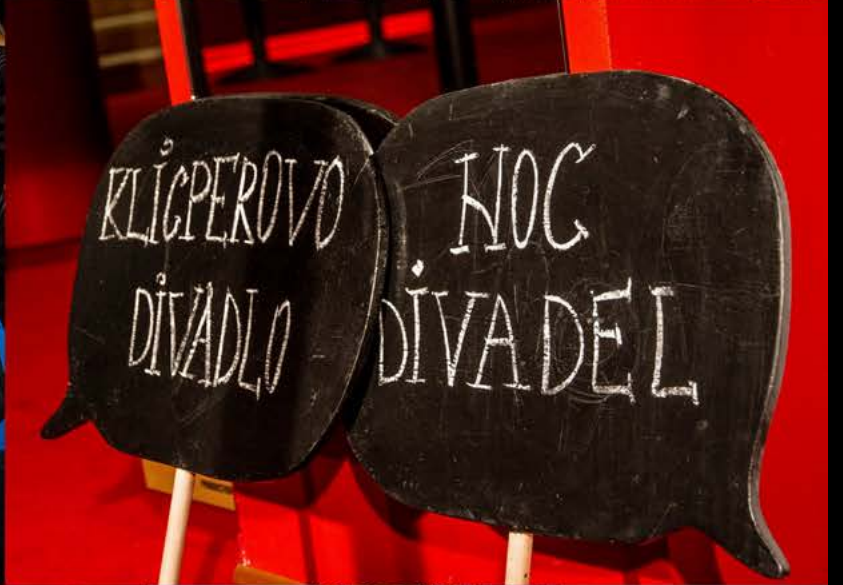 KLICPEROVO
DIVADLO
NOC
DIVADEL